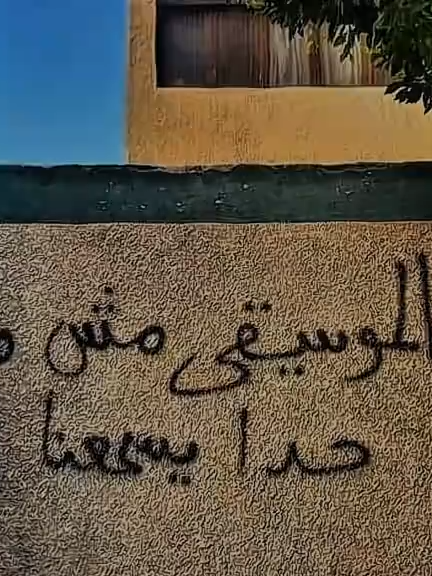 الموسيقى مش
حدا يسمعنا